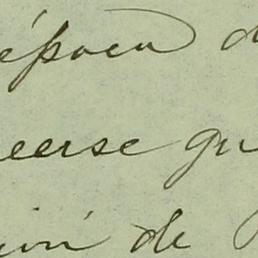 época d
eerse qu
ión de